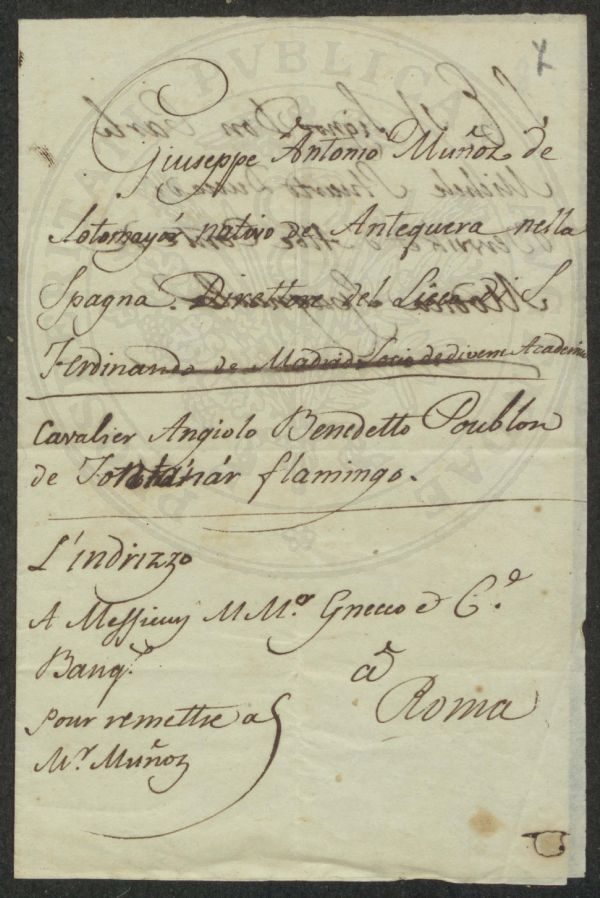 Giuseppe Antonio Muñoz de
Sotomayór nativo de Antequera nella
Spagna. Direttore del Liceo di S.
Ferdinando de Madrid Socio de diverse Academie
Cavalier Angiolo Benedetto Poublon
de flamingo.
L'indrizzo
A Messieurs M Mrs Gnecco e Ce.
Banqs. a
Roma
pour remettre a
Mr. Muñoz